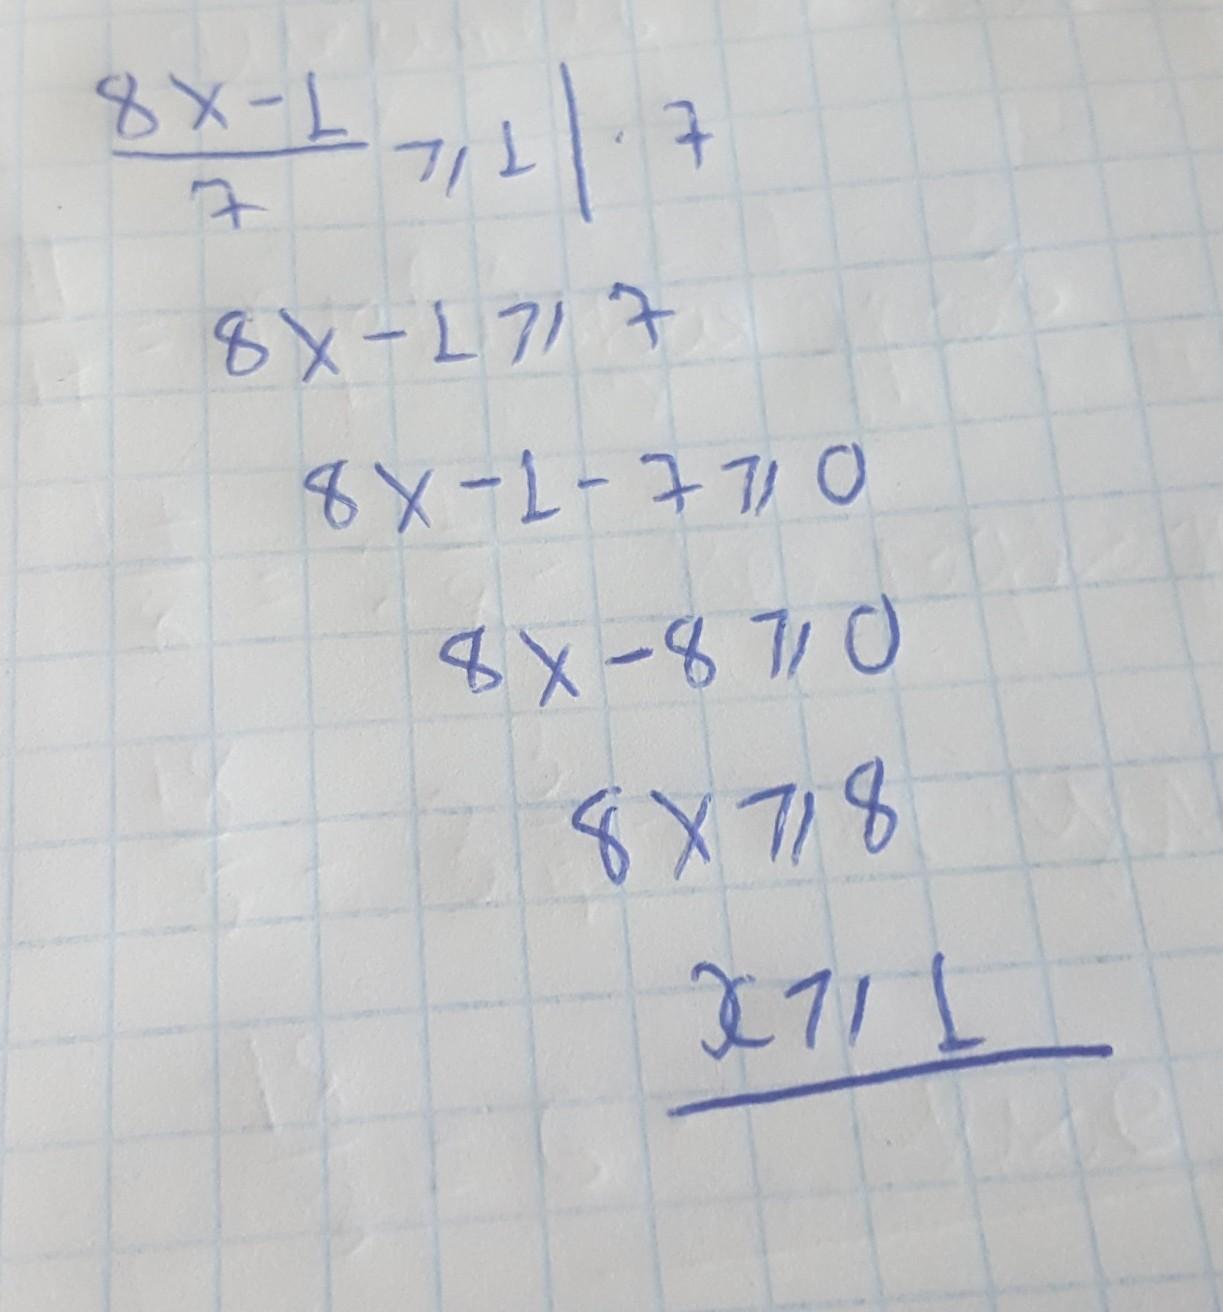 (8x-1)/7 ⩾ 1 | · 7
8x-1 ⩾ 7
8x-1-7 ⩾ 0
8x-8 ⩾ 0
8x ⩾ 8
x ⩾ 1